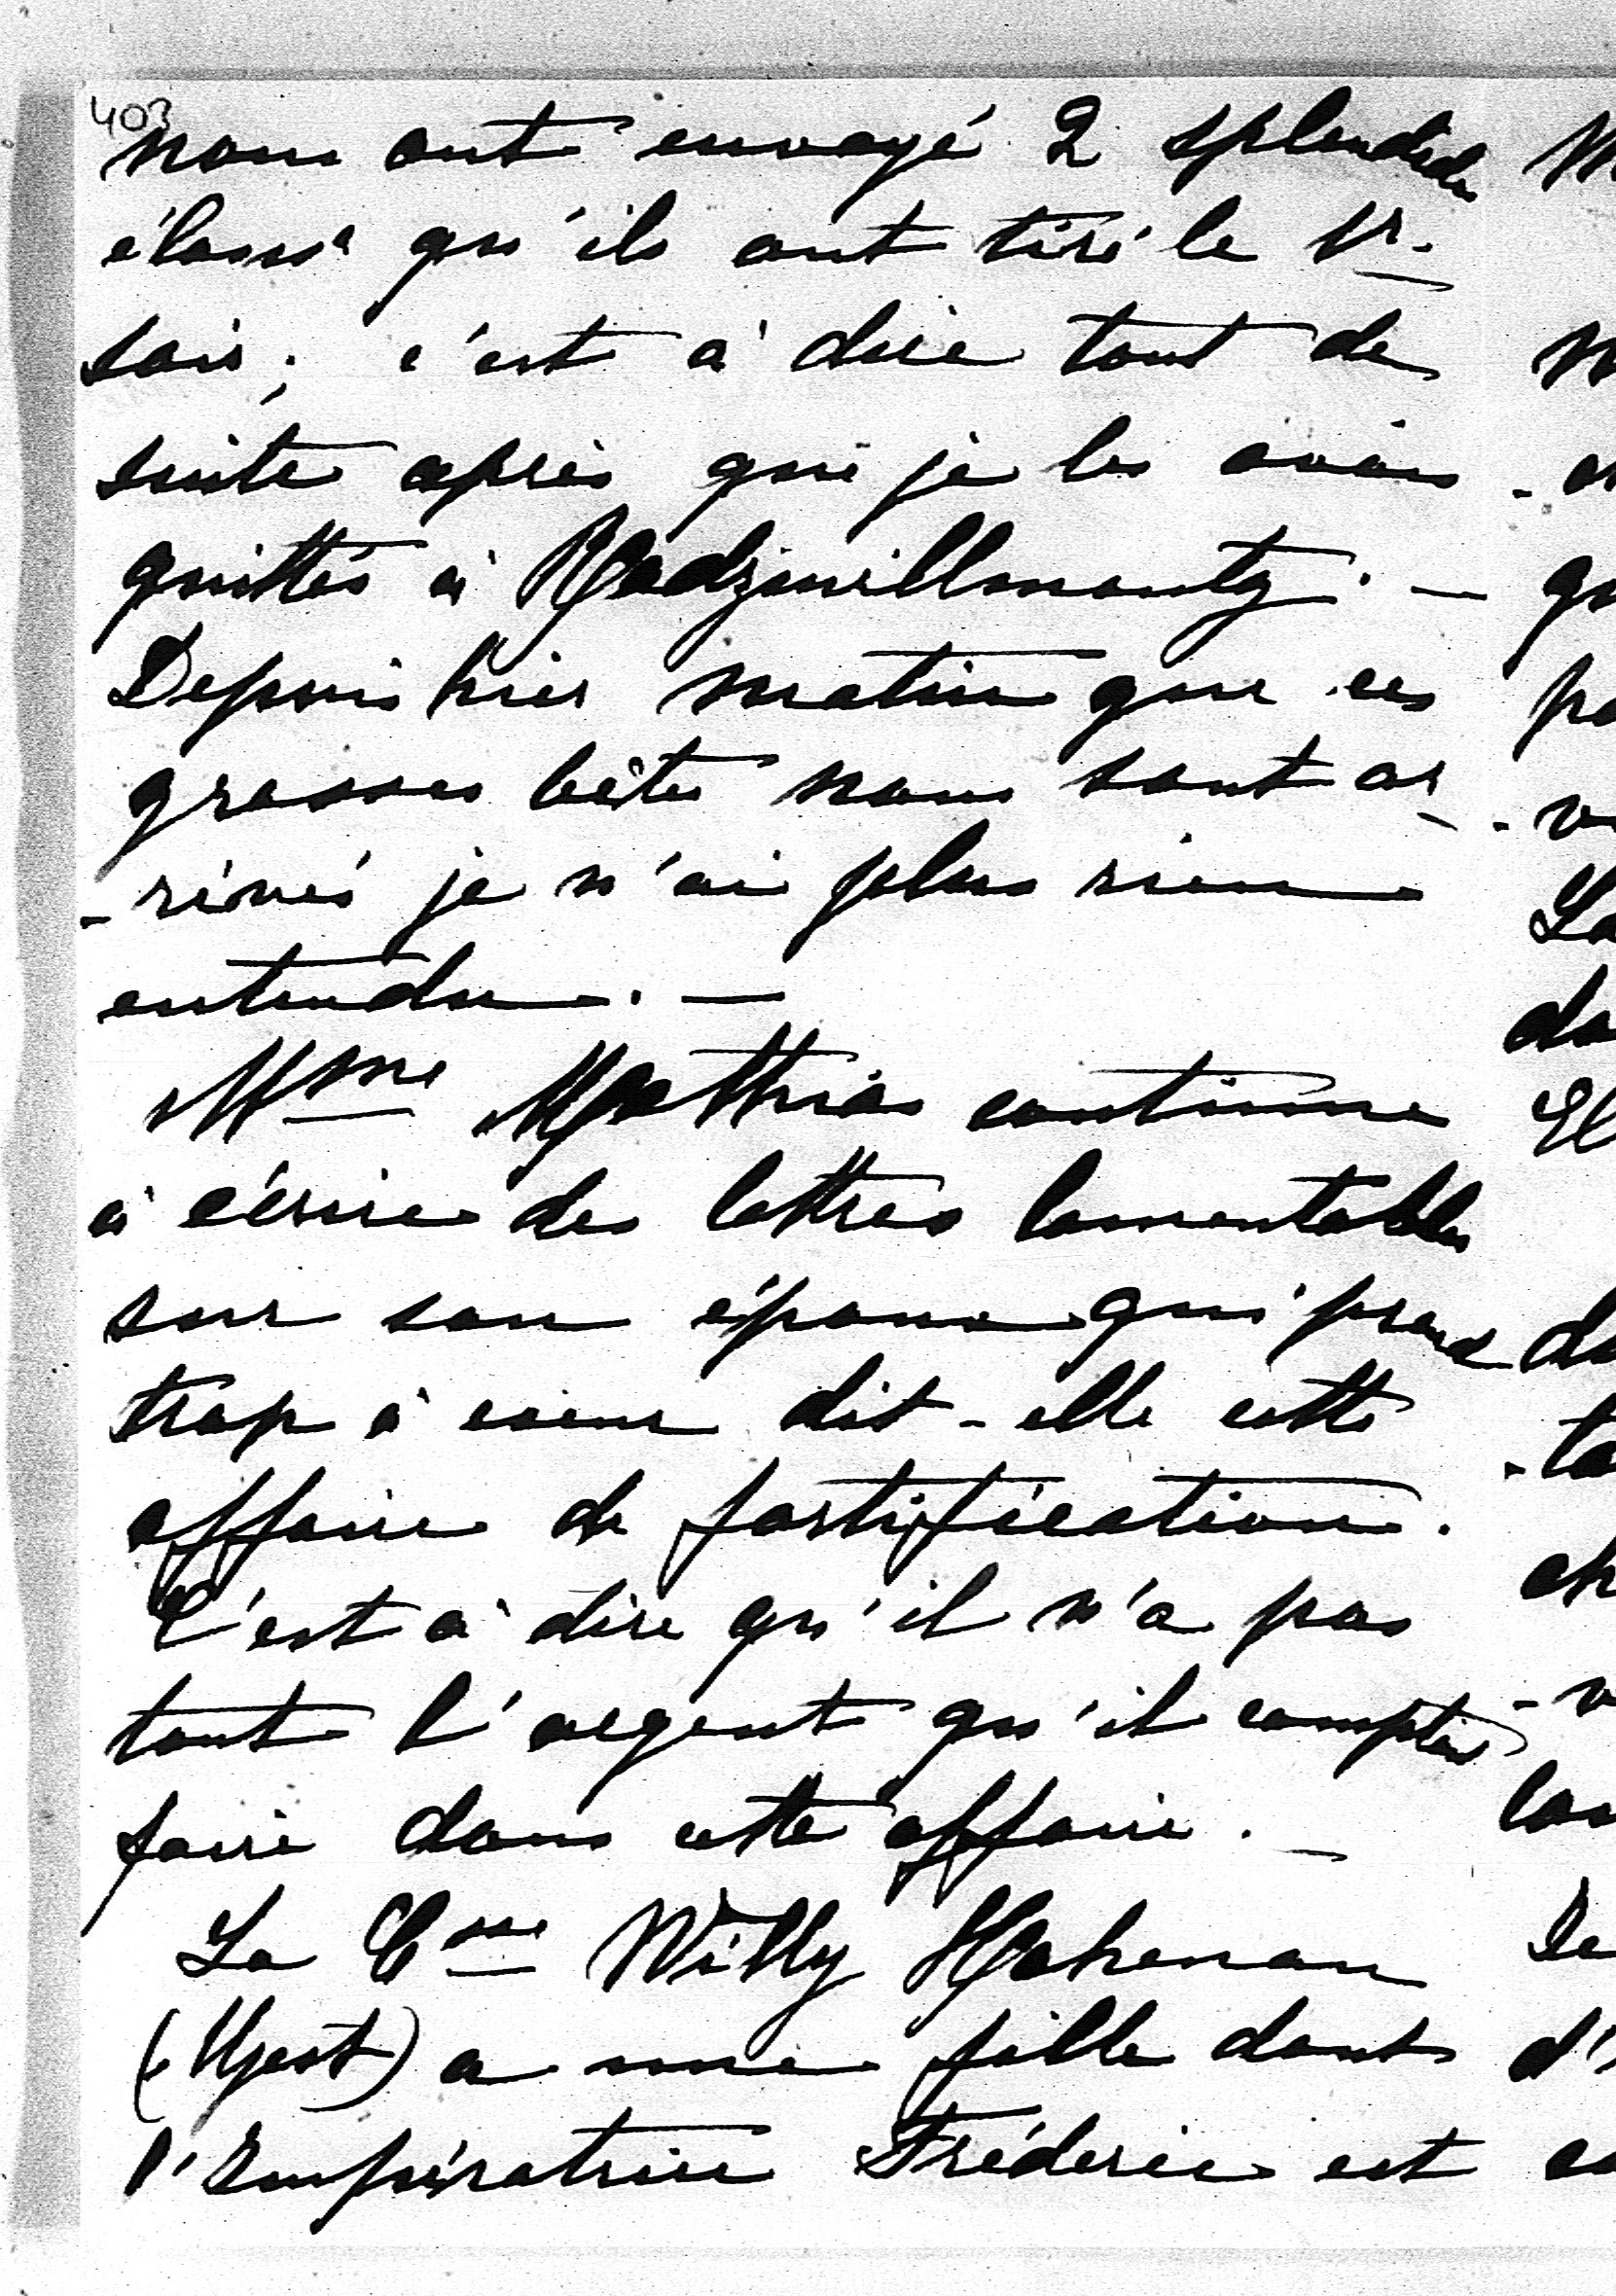 403
nous ont envoyé 2 splendides
élans qu'ils ont tiré le 1r
soir; c'est à dire tout de
suite après que je les avais
quittés à Radziwillmonty. —
Depuis hier matin que ces
grosses bêtes nous sont ar
-rivés je n'ai plus rien
entendu. —
Mme Mathias continue
à écrire des lettres lamentables
sur son époux qui prend
trop à coeur dit-elle cette
affaire de fortification.
C'est à dire qu'il n'a pas
tout l'argent qu'il comptait
faire dans cette affaire. —
La Csse Willy Hohenau
(Ujest) a une fille dont
l'Impératrice Fréderic est